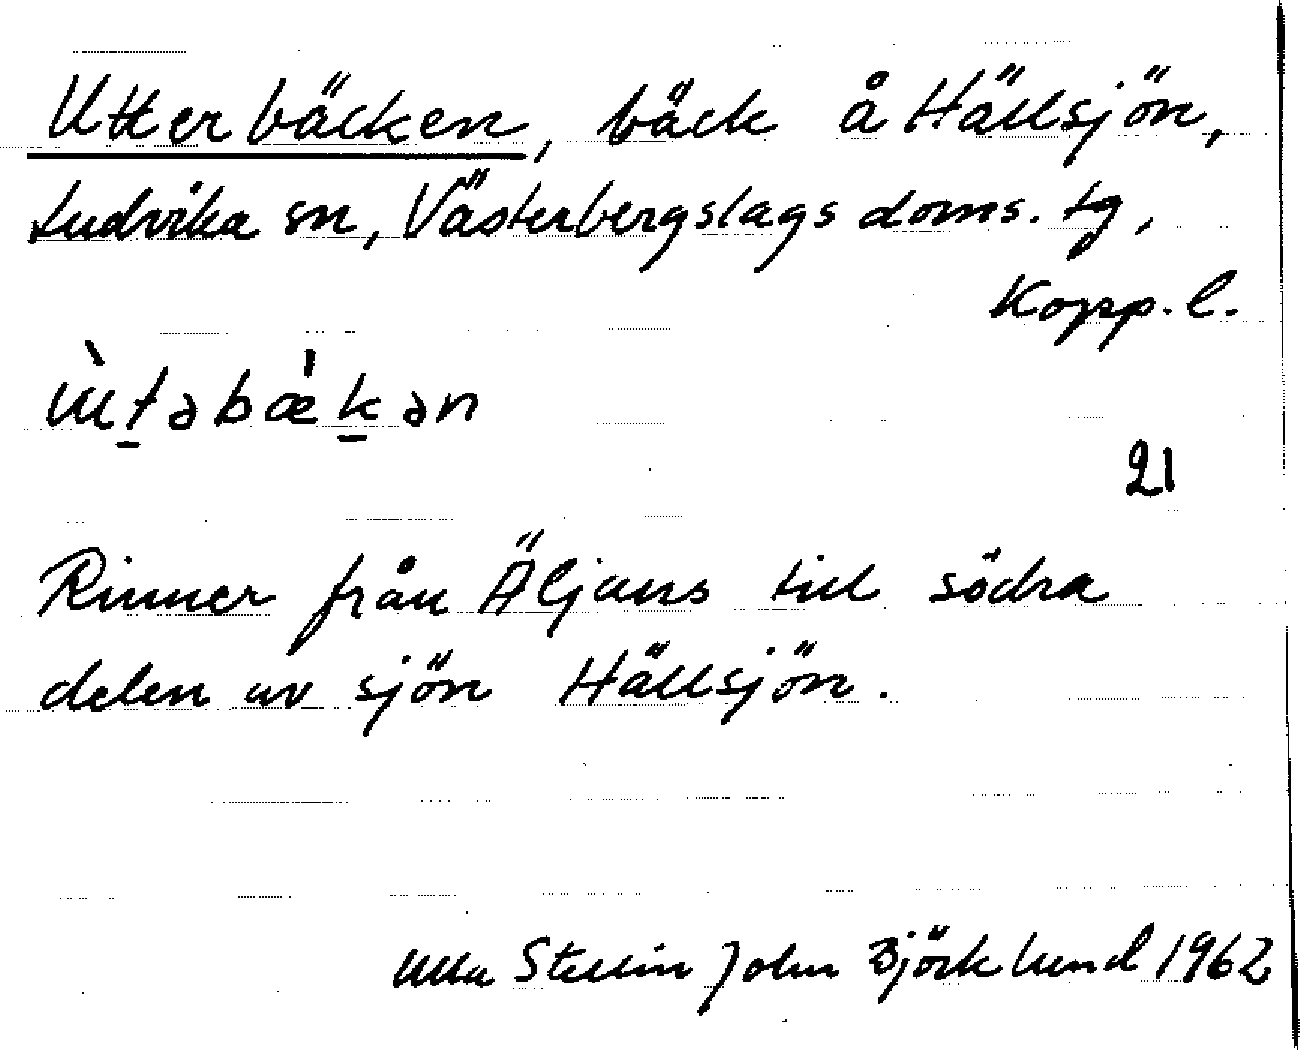 Utterbäcken, bäck å Hällsjön,
Ludvika sn, Västerbergslags doms. tg,
Kopp. l.
ɯ̀t̠əbǽk̠ən
21
Rinner från Äljans till södra
delen av sjön Hällsjön.
Ulla Stellin John Björklund 1962